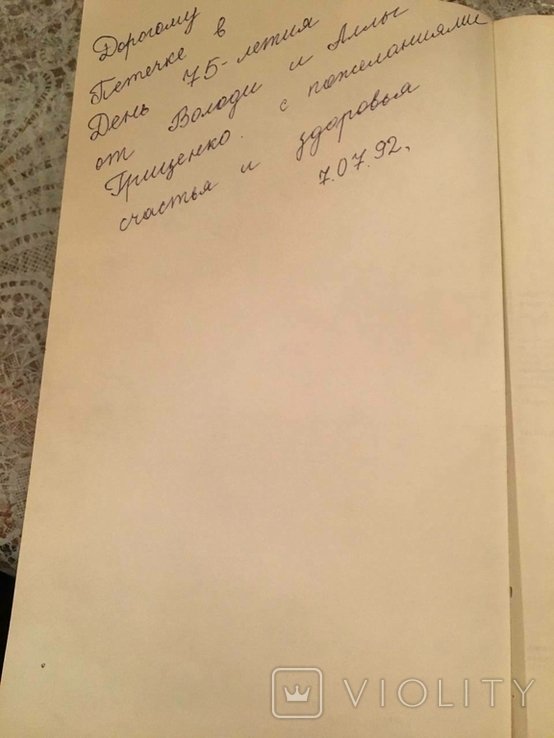 Дорогому
Петечке в
День 75-летия
от Володи и Аллы
Гриценко. с пожеланиями
счастья и здоровья
7.07.92.
VIOLITY